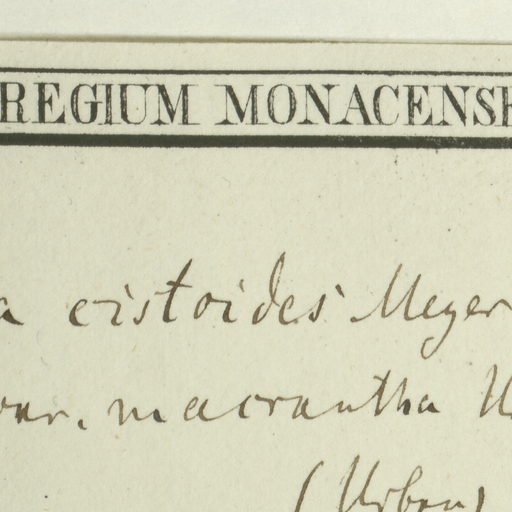 REGIUM MONACENSE
a cistoides Meyer
var. macrantha U
(Urban)